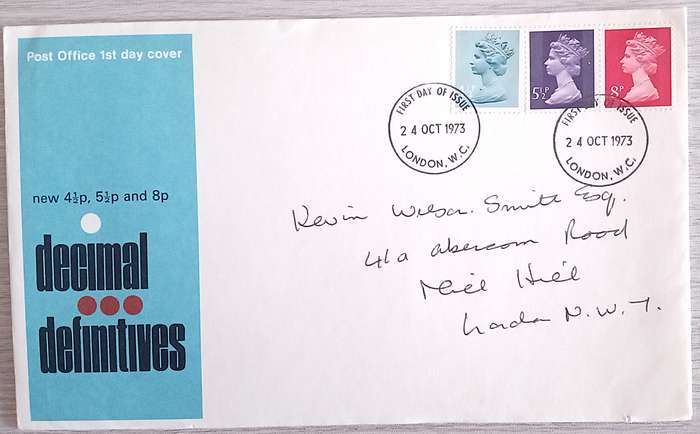 Post Office 1st day cover
new 4½p, 5½p and 8p
decimal
definitives
5½P
8P
FIRST DAY OF ISSUE
24 OCT 1973
LONDON, W.C.
FIRST DAY OF ISSUE
24 OCT 1973
LONDON, W.C.
Kevin Wilson-Smith Esq.
41a Abercorn Road
Mill Hill
London N.W.7.